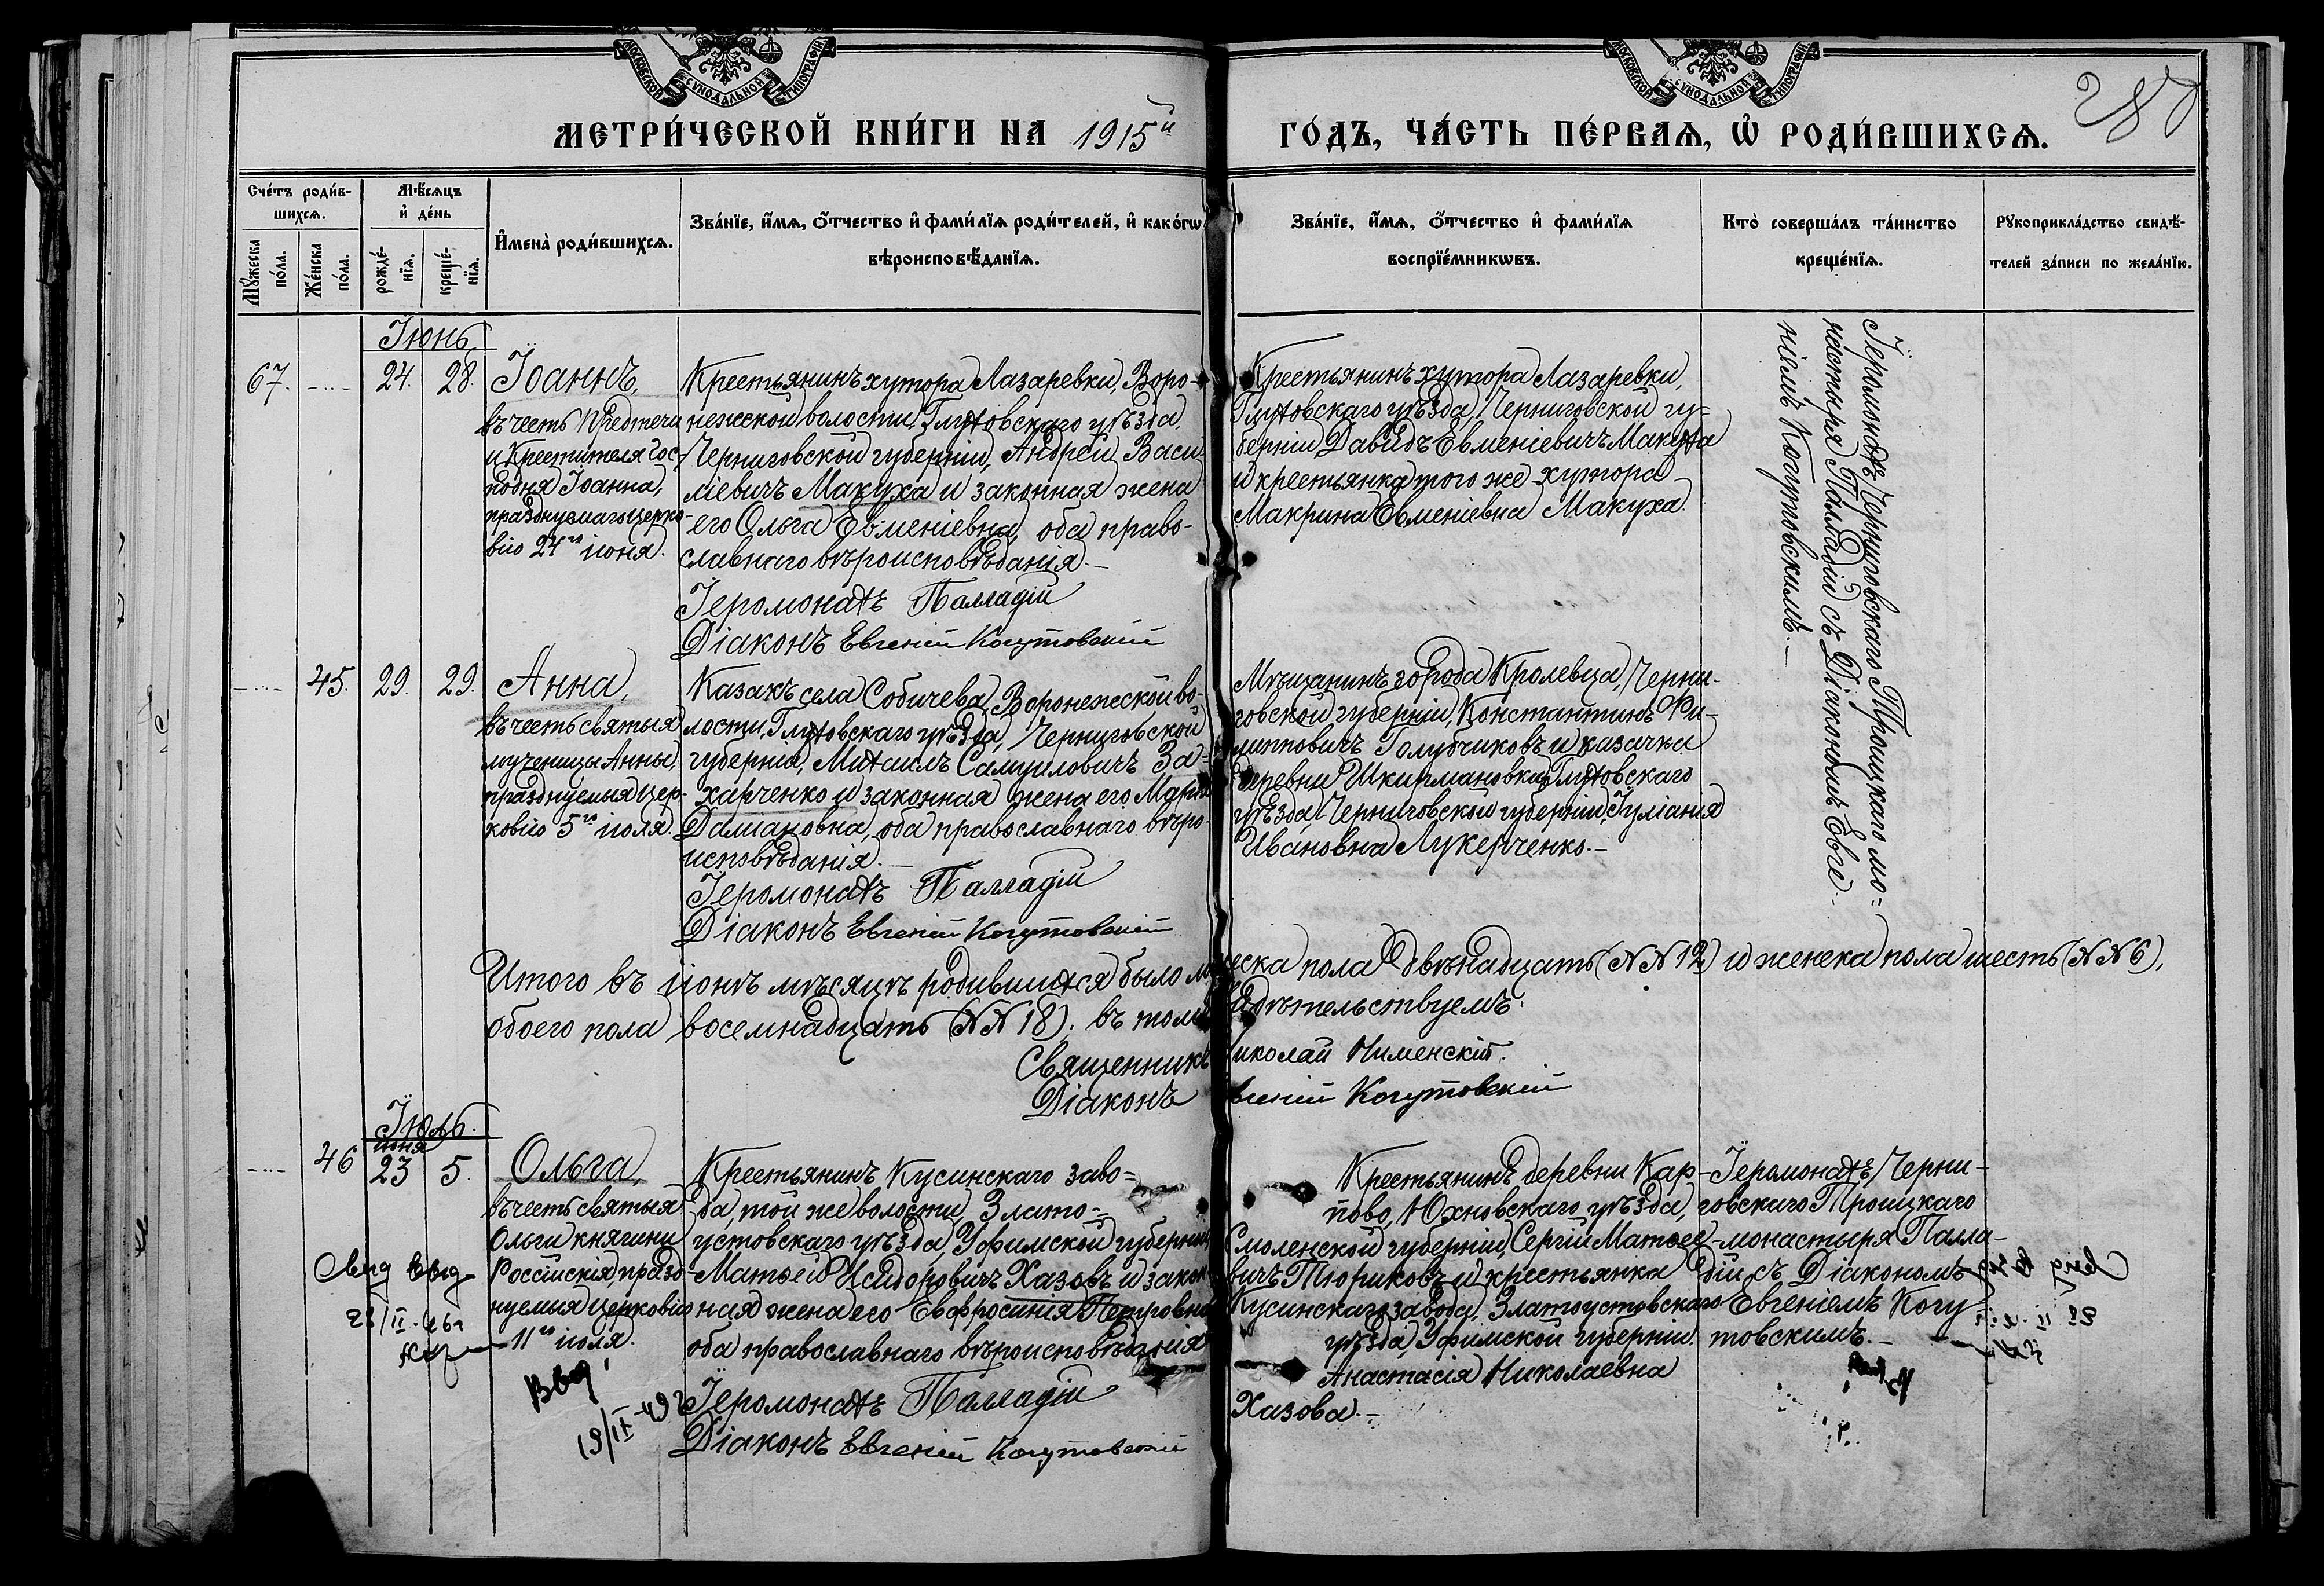 МОСКОВСКОЙ СУНОДАЛЬНОЙ ТИПОГРАФІИ
МОСКОВСКОЙ СУНОДАЛЬНОЙ ТИПОГРАФІИ
МЕТРИ́ЧЕСКОЙ КНИ́ГИ НА 1915й
ГО́ДЪ, ЧА́СТЬ ПЕ́РВАЯ, Ѡ РОДИ́ВШИХСЯ.
Сче́тъ роди́в-
шихся.
Му́жеска
по́ла.
Же́нска
по́ла.
Мѣ́сяцъ
и де́нь
рожде́-
нїя.
креще́-
нїя.
И҆мена̀ роди́вшихся.
Зва́нїе, и҆́мя, ѻ҆́тчество и҆ фами́лїя роди́телей, и҆ како́гѡ
вѣроисповѣ́данїя.
Зва́нїе, и҆́мя, ѻ҆́тчество и҆ фами́лїя
воспрїе́мникѡвъ.
Кто̀ соверша́лъ та́инство
креще́нїя.
Рукоприкла́дство свидѣ́-
телей за́писи по жела́нїю.
Іюнь.
67.
24.
28.
Іоаннъ,
въ честь Предтечи
и Крестителя Гос-
подня Іоанна,
празднуемаго Церко-
вію 24го іюня.
Крестьянинъ хутора Лазаревки, Воро-
нежской волости, Глуховскаго уѣзда,
Черниговской губерніи, Андрей Васи-
ліевичъ Макуха и законная жена
его Ольга Евменіевна, оба право-
славнаго вѣроисповѣданія.-
Іеромонахъ Палладій
Діаконъ Евгеній Когутовскій
Крестьянинъ хутора Лазаревки,
Глуховскаго уѣзда, Черниговской гу-
берніи Давидъ Евменіевичъ Макуха
и крестьянка того же хутора
Макрина Евменіевна Макуха.
Іеромонахъ Черниговскаго Троицкаго мо=
настыря Палладій съ Діакономъ Евге-
ніемъ Когутовскимъ.-
45.
29.
29.
Анна,
въ честь святыя
мученицы Анны,
празднуемыя Цер-
ковію 5го іюля.
Казакъ села Собичева, Воронежской во-
лости, Глуховскаго уѣзда, Черниговской
губерніи, Михаилъ Самуиловичъ За-
харченко и законная жена его Марѳа
Даміановна, оба православнаго вѣро-
исповѣданія.-
Іеромонахъ Палладій
Діаконъ Евгеній Когутовскій
Мѣщанинъ города Кролевца, Черни-
говской губерніи, Константинъ Фи-
липповичъ Голубчиковъ и казачка
деревни Шкирмановки, Глуховскаго
уѣзда, Черниговской губерніи, Іуліанія
Ивановна Лукерченко.-
Итого въ іюнѣ мѣсяцѣ родившихся было мужеска пола двѣнадцать (NN 12) и женска пола шесть (NN 6),
обоего пола восемнадцать (NN 18); въ томъ свидѣтельствуемъ:
Священникъ Николай Нименскій.
Діаконъ Евгеній Когутовскій
Іюль.
46
іюня
23
5.
Ольга,
въ честь святыя
Ольги княгини
Россійскія, празд-
нуемыя Церковію
11го іюля.
Крестьянинъ Кусинскаго заво=
да, той же волости, Злато=
устовскаго уѣзда, Уфимской губерніи,
Матѳей Исидоровичъ Хазовъ и закон
ная жена его Евфросинія Петровна
оба православнаго вѣроисповѣданія
Іеромонахъ Палладій
Діаконъ Евгеній Когутовскій
Крестьянинъ деревни Кар-
пово, Юхновскаго уѣзда,
Смоленской губерніи, Сергій Матѳее-
вичъ Тюриковъ и крестьянка
Кусинскаго завода, Златоустовскаго
уѣзда, Уфимской губерніи
Анастасія Николаевна
Хазова.-
Іеромонахъ Черни-
говскаго Троицкаго
монастыря Палла-
дій съ Діакономъ
Евгеніемъ Когу-
товскимъ.-
19/II-49г